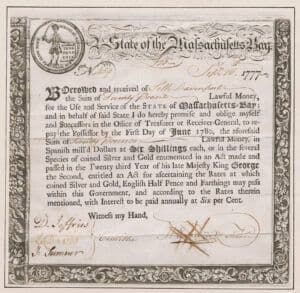 State of the Massachusetts-Bay.
1777
Borrowed and received of
the Sum of Twenty Pounds Lawful Money,
for the Use and Service of the STATE of Massachusetts-Bay;
and in behalf of said State I do hereby promise and oblige myself
and Successors in the Office of Treasurer or Receiver-General, to
repay the Possessor by the First Day of June 1780, the aforesaid
Sum of Lawful Money, in
Spanish mill'd Dollars at Six Shillings each, or in the several
Species of coined Silver and Gold enumerated in an Act made and
passed in the Twenty Third Year of his late Majesty King George
the Second, entitled an Act for ascertaining the Rates at which
coined Silver and Gold, English Half Pence and Farthings may pass
within this Government, and according to the Rates therein
mentioned, with Interest to be paid annually at Six per Cent.
Witness my Hand,
D. Jeffries